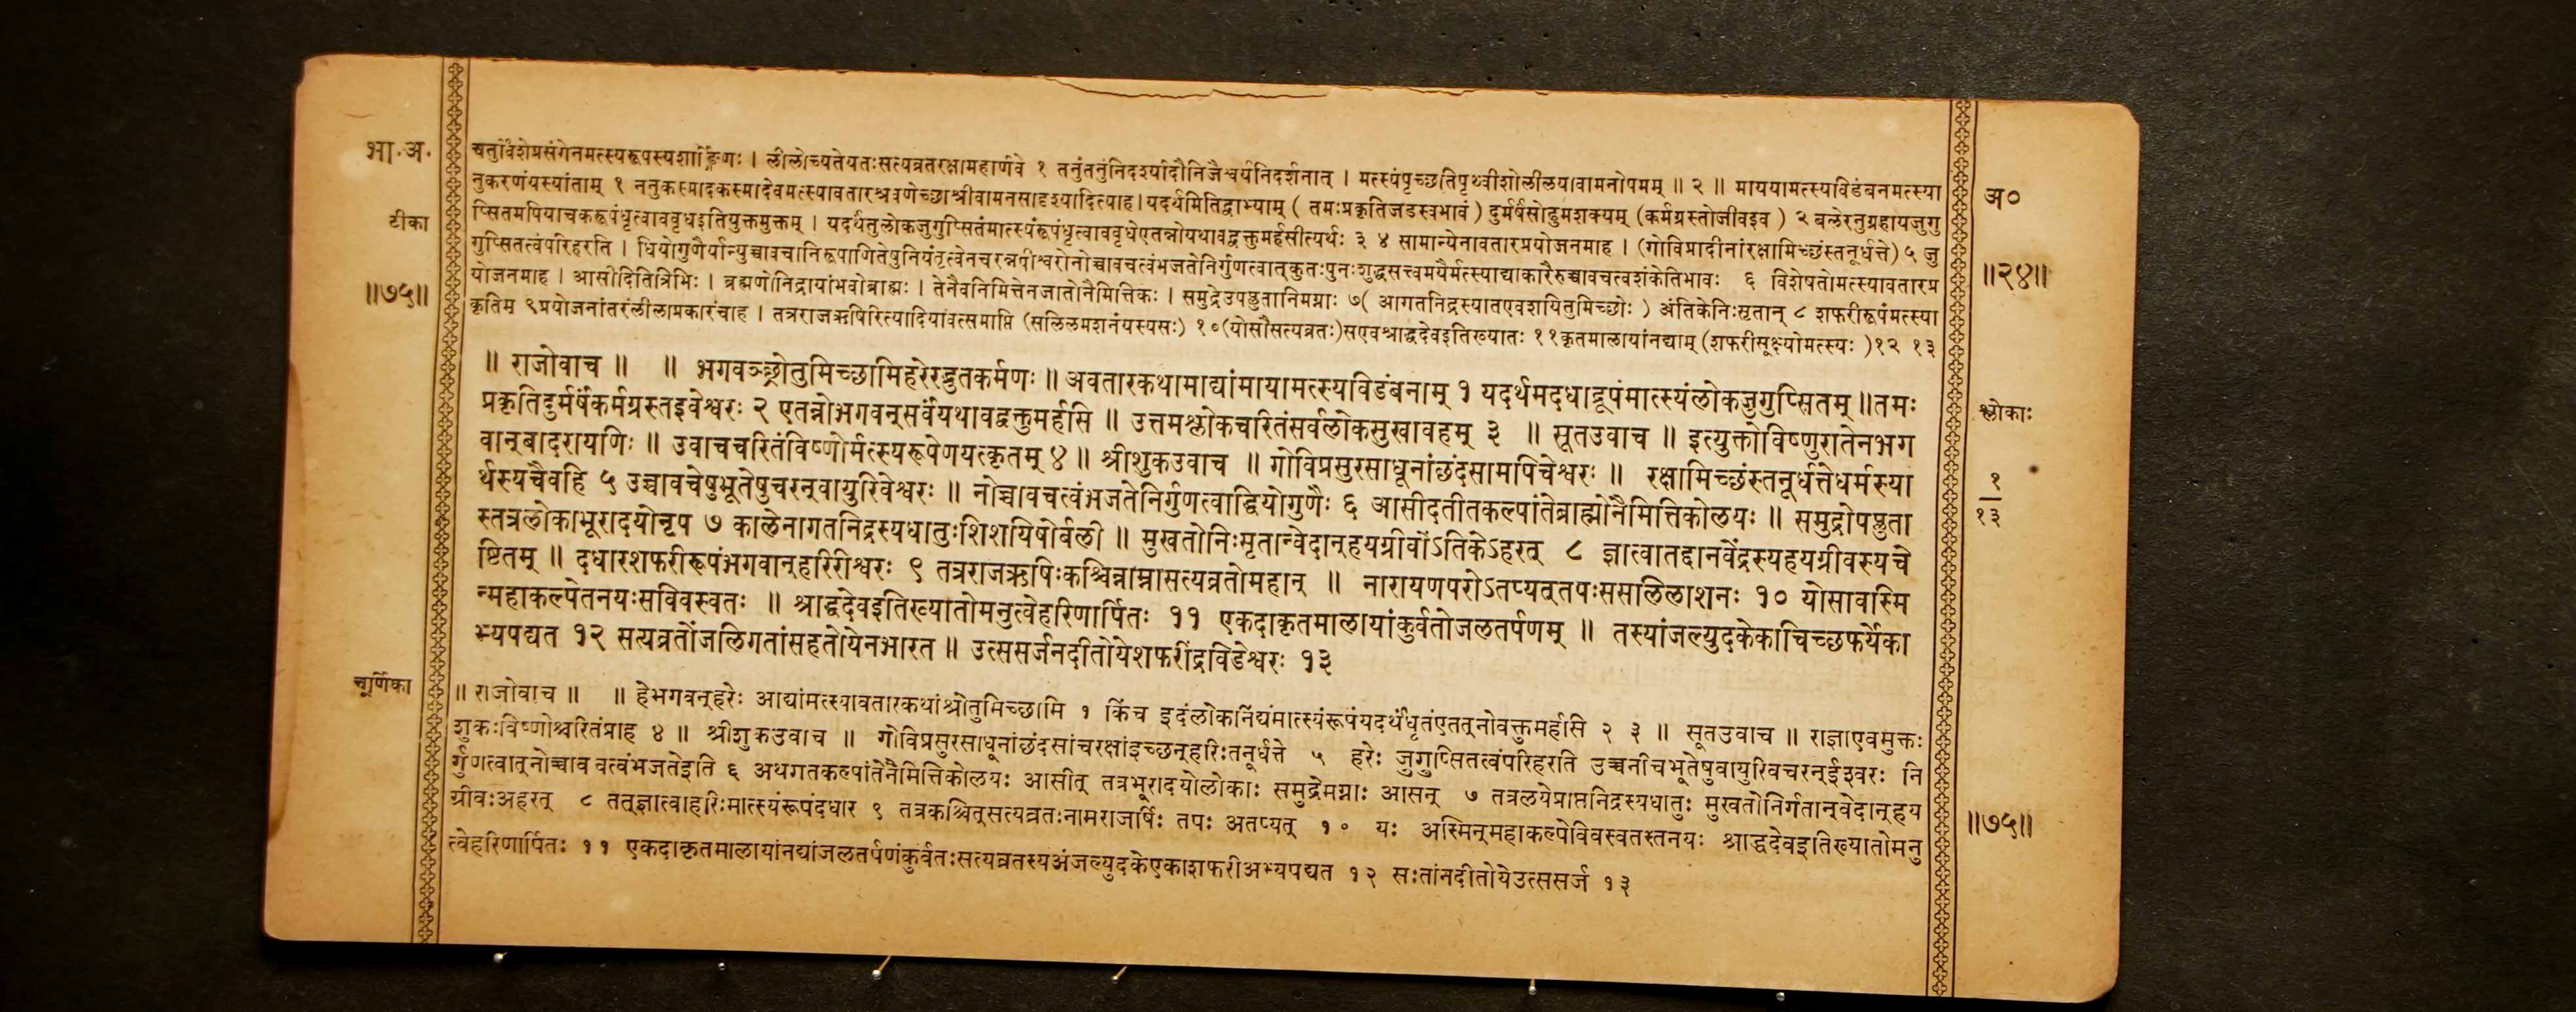 भा.अ.
टीका
॥७५॥
चतुर्विंशेप्रसंगेनमत्स्यरूपस्यशार्ङ्गिणः । लीलोच्यतेयतःसत्यव्रतरक्षामहार्णवे १ तनुंतनुंनिदर्श्यादौनिजैश्वर्यनिदर्शनात् । मत्स्यंपृच्छतिपृथ्वीशोलीलयावामनोपमम् ॥ २ ॥ माययामत्स्यविडंबनमत्स्या
नुकरणंयस्यांताम् १ ननुकस्मादकस्मादेवमत्स्यावतारश्रवणेच्छाश्रीवामनसादृश्यादित्याह।यदर्थमितिद्वाभ्याम् ( तमःप्रकृतिजडस्वभावं ) दुर्मर्षंसोढुमशक्यम् (कर्मग्रस्तोजीवइव ) २ बलेरनुग्रहायजुगु
प्सितमपियाचकरूपंधृत्वाववृधइतियुक्तमुक्तम् । यदर्थंतुलोकजुगुप्सितंमात्स्यंरूपंधृत्वाववृधेएतन्नोयथावद्वक्तुमर्हसीत्यर्थः ३ ४ सामान्येनावतारप्रयोजनमाह । (गोविप्रादीनांरक्षामिच्छंस्तनूर्धत्ते) ५ जु
गुप्सितत्वंपरिहरति । धियोगुणैर्यान्युच्चावचानिरूपाणितेषुनियंतृत्वेनचरन्नपीश्वरोनोच्चावचत्वंभजतेनिर्गुणत्वात्कुतःपुनःशुद्धसत्त्वमयैर्मत्स्याद्याकारैरुच्चावचत्वशंकेतिभावः ६ विशेषतोमत्स्यावतारप्र
योजनमाह । आसीदितित्रिभिः । ब्रह्मणोनिद्रायांभवोब्राह्मः । तेनैवनिमित्तेनजातोनैमित्तिकः । समुद्रेउपप्लुतानिमग्नाः ७( आगतनिद्रस्यातएवशयितुमिच्छोः ) अंतिकेनिःसृतान् ८ शफरीरूपंमत्स्या
कृतिम् ९प्रयोजनांतरंलीलाप्रकारंचाह । तत्रराजऋषिरित्यादियावत्समाप्ति (सलिलमशनंयस्यसः) १०(योसौसत्यव्रतः)सएवश्राद्धदेवइतिख्यातः ११कृतमालायांनद्याम् (शफरीसूक्ष्मोमत्स्यः )१२ १३
॥ राजोवाच ॥ ॥ भगवञ्छ्रोतुमिच्छामिहरेरद्भुतकर्मणः ॥ अवतारकथामाद्यांमायामत्स्यविडंबनाम् १ यदर्थमदधाद्रूपंमात्स्यंलोकजुगुप्सितम् ॥तमः
प्रकृतिदुर्मर्षंकर्मग्रस्तइवेश्वरः २ एतन्नोभगवन्सर्वंयथावद्वक्तुमर्हसि ॥ उत्तमश्लोकचरितंसर्वलोकसुखावहम् ३ ॥ सूतउवाच ॥ इत्युक्तोविष्णुरातेनभग
वान्बादरायणिः ॥ उवाचचरितंविष्णोर्मत्स्यरूपेणयत्कृतम् ४ ॥ श्रीशुकउवाच ॥ गोविप्रसुरसाधूनांछंदसामपिचेश्वरः ॥ रक्षामिच्छंस्तनूर्धत्तेधर्मस्या
र्थस्यचैवहि ५ उच्चावचेषुभूतेषुचरन्वायुरिवेश्वरः ॥ नोच्चावचत्वंभजतेनिर्गुणत्वाद्धियोगुणैः ६ आसीदतीतकल्पांतेब्राह्मोनैमित्तिकोलयः ॥ समुद्रोपप्लुता
स्तत्रलोकाभूरादयोनृप ७ कालेनागतनिद्रस्यधातुःशिशयिषोर्बली ॥ मुखतोनिःसृतान्वेदान्हयग्रीवोंऽतिकेऽहरत् ८ ज्ञात्वातद्दानवेंद्रस्यहयग्रीवस्यचे
ष्टितम् ॥ दधारशफरीरूपंभगवान्हरिरीश्वरः ९ तत्रराजऋषिःकश्चिन्नाम्नासत्यव्रतोमहान् ॥ नारायणपरोऽतप्यत्तपःससलिलाशनः १० योसावस्मि
न्महाकल्पेतनयःसविवस्वतः ॥ श्राद्धदेवइतिख्यातोमनुत्वेहरिणार्पितः ११ एकदाकृतमालायांकुर्वतोजलतर्पणम् ॥ तस्यांजल्युदकेकाचिच्छफर्येका
भ्यपद्यत १२ सत्यव्रतोंजलिगतांसहतोयेनभारत ॥ उत्ससर्जनदीतोयेशफरींद्रविडेश्वरः १३
चूर्णिका
॥ राजोवाच ॥ ॥ हेभगवन्हरेः आद्यांमत्स्यावतारकथांश्रोतुमिच्छामि १ किंच इदंलोकनिंद्यंमात्स्यंरूपंयदर्थंधृतंएतत्नोवक्तुमर्हसि २ ३ ॥ सूतउवाच ॥ राज्ञाएवमुक्तः
शुकःविष्णोश्चरितंप्राह ४ ॥ श्रीशुकउवाच ॥ गोविप्रसुरसाधूनांछंदसांचरक्षांइच्छन्हरिःतनूर्धत्ते ५ हरेः जुगुप्सितत्वंपरिहरति उच्चनीचभूतेषुवायुरिवचरन्ईश्वरः नि
र्गुणत्वात्नोच्चावचत्वंभजतेइति ६ अथगतकल्पांतेनैमित्तिकोलयः आसीत् तत्रभूरादयोलोकाः समुद्रेमग्नाः आसन् ७ तत्रलयेप्राप्तनिद्रस्यधातुः मुखतोनिर्गतान्वेदान्हय
ग्रीवःअहरत् ८ तत्ज्ञात्वाहरिःमात्स्यंरूपंदधार ९ तत्रकश्चित्सत्यव्रतःनामराजर्षिः तपः अतप्यत् १० यः अस्मिन्महाकल्पेविवस्वतस्तनयः श्राद्धदेवइतिख्यातोमनु
त्वेहरिणार्पितः ११ एकदाकृतमालायांनद्यांजलतर्पणंकुर्वतःसत्यव्रतस्यअंजल्युदकेएकाशफरीअभ्यपद्यत १२ सःतांनदीतोयेउत्ससर्ज १३
अ०
॥२४॥
श्लोकाः
१
१३
॥७५॥